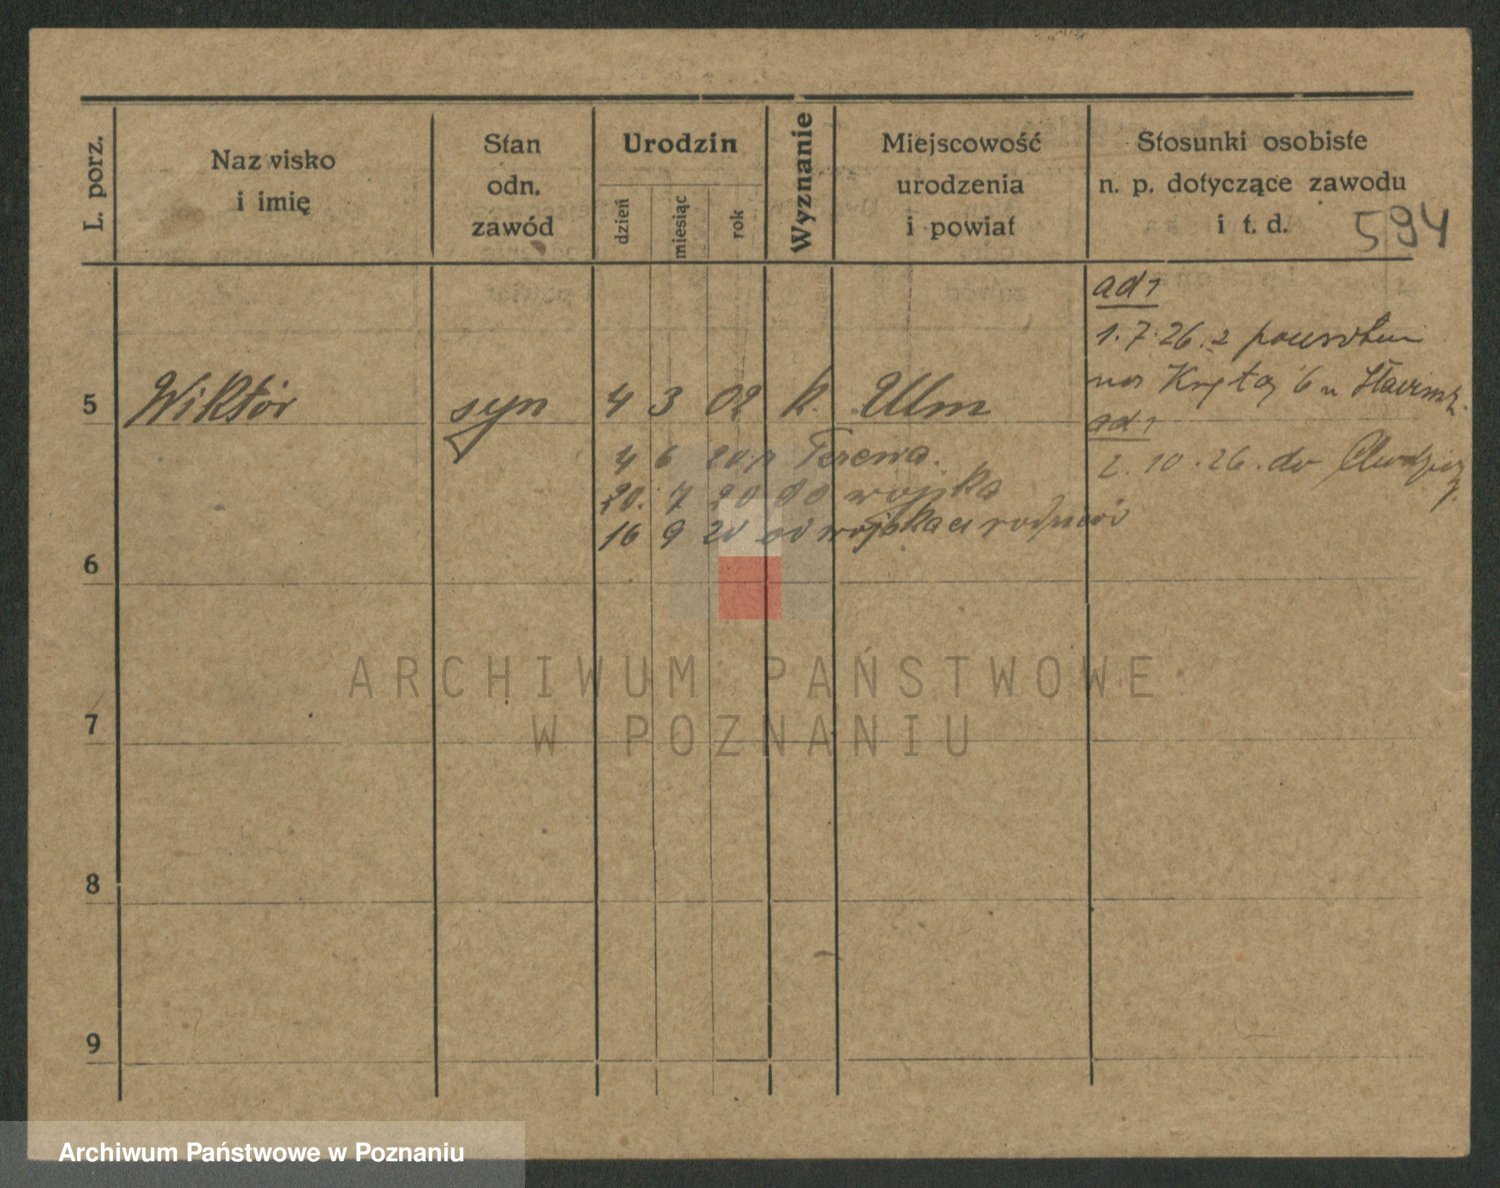 L. porz.
Nazwisko
i imię
Stan
odn.
zawód
Urodzin
dzień
miesiąc
rok
Wyznanie
Miejscowość
urodzenia
i powiat
Stosunki osobiste
n. p. dotyczące zawodu
i t. d.
594
ad 1
1.7.26. z
na Krętą 6 u
5 Wiktór syn 4 3 02 k. Ulm
ad 1
4 6 20
2.10.26. do
20. 7 20 do wojska
16 9 20 od wojska
6
7
8
9
ARCHIWUM PAŃSTWOWE
W POZNANIU
Archiwum Państwowe w Poznaniu